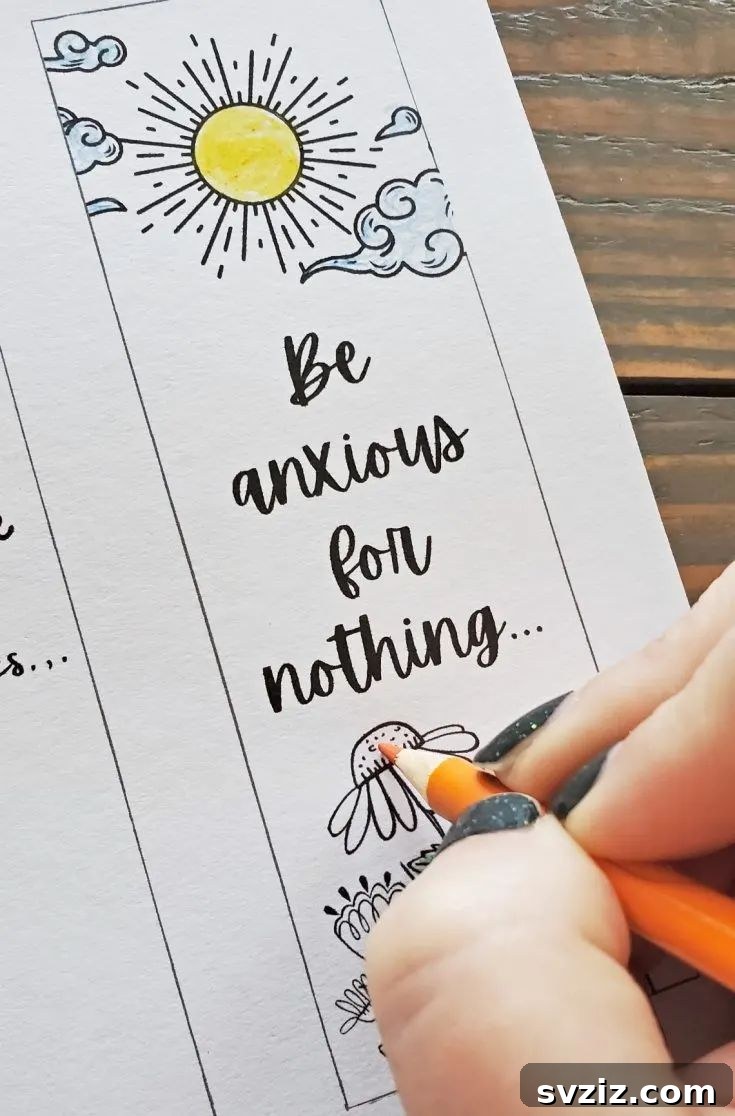 Be
anxious
for
nothing...
svziz.com